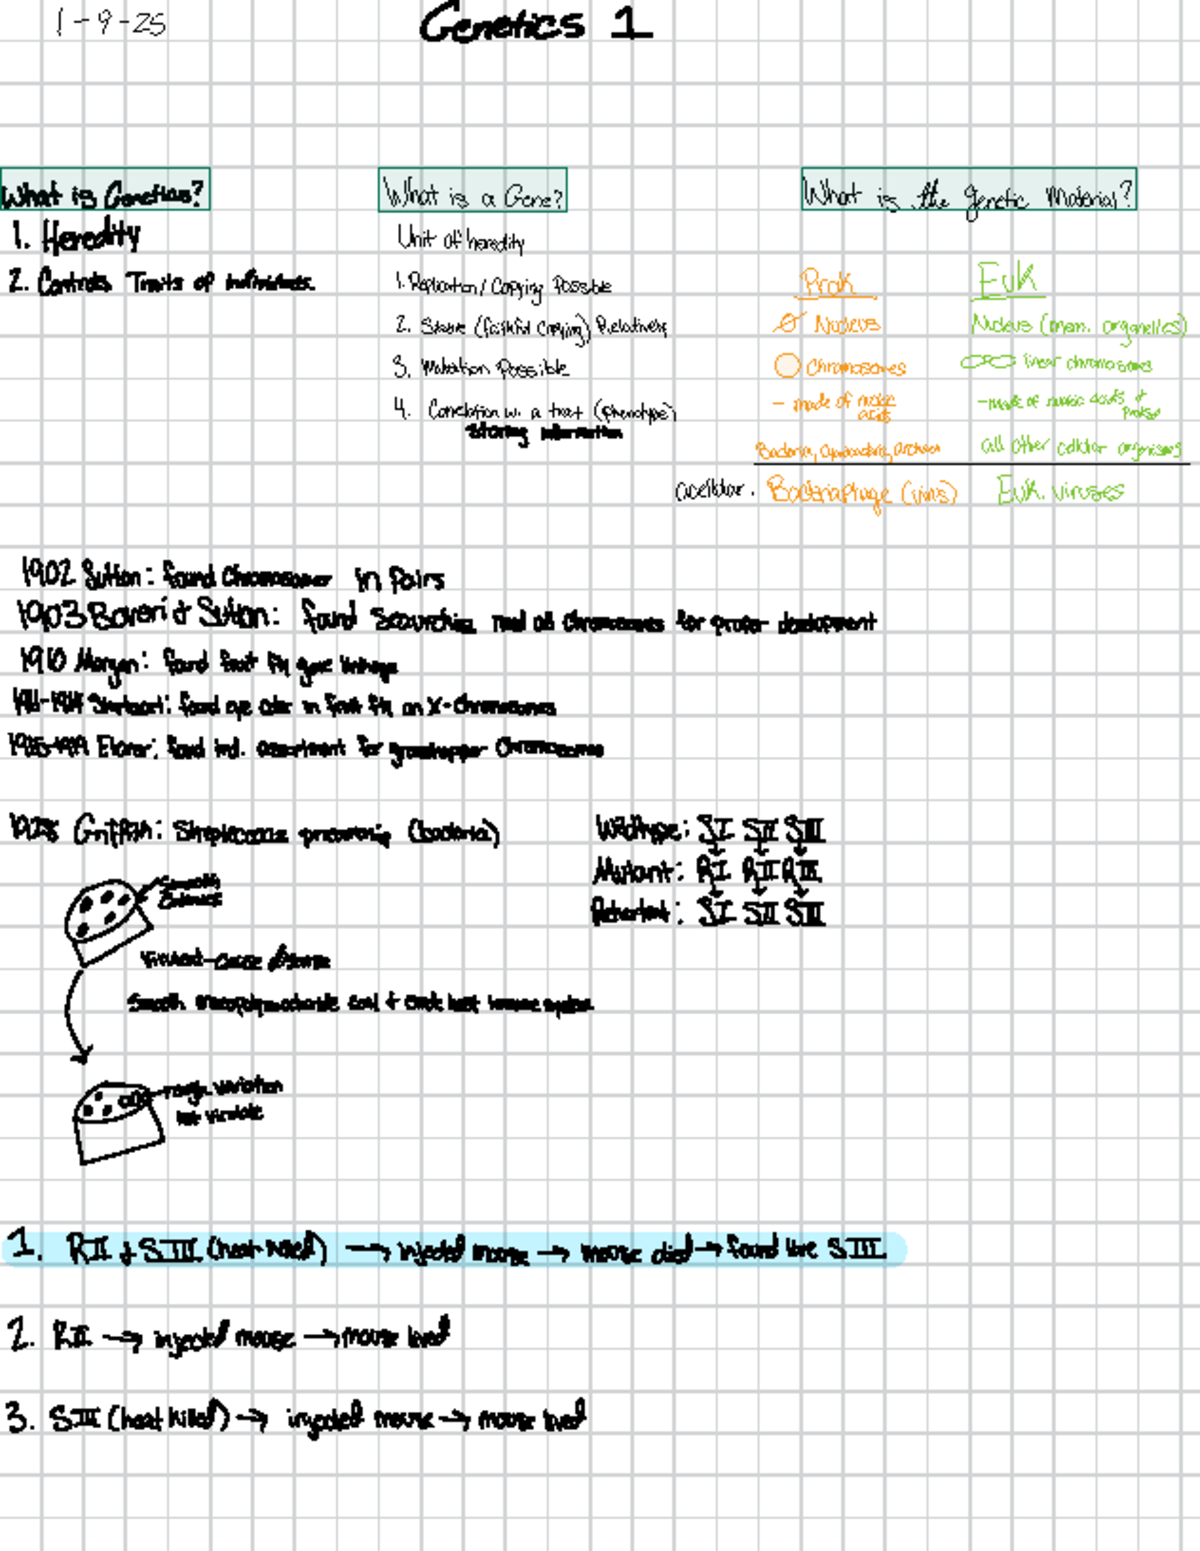 1-9-25
Genetics 1
What is Genetics?
1. Heredity
2. Controls Traits of individuals.
What is a Gene?
Unit of heredity
1. Replication/Copying Possible
2. Stable (faithful copying) Relatively
3. Mutation Possible
4. Correlation w. a trait (phenotype)
storing information
What is the genetic material?
Prok
Nucleus
Chromosomes
- made of nucleic
acids
Bacteria, archaea
Euk
Nucleus (mem. organelles)
linear chromosomes
- made of nucleic acids +
all other cellular organisms
acellular. Bacteriaphage (virus) Euk. viruses
1902 Sutton: found Chromosomes in pairs
1903 Boveri & Sutton: found need all chromosomes for proper development
1910 Morgan: found fruit fly gene linkage
found eye color in fruit fly on X-Chromosomes
found ind. assortment for grasshopper Chromosomes
1928 Griffith: (bacteria)
Smooth
Colonies
Virulent-cause disease
Smooth coat + host immune system
rough variation
not virulate
Wildtype: SI SII SIII
Mutant: RI RII RIII
SI SII SIII
1. RII + SIII (heat-killed) → injected mouse → mouse died → found live SIII
2. RII → injected mouse → mouse lived
3. SIII (heat killed) → injected mouse → mouse lived